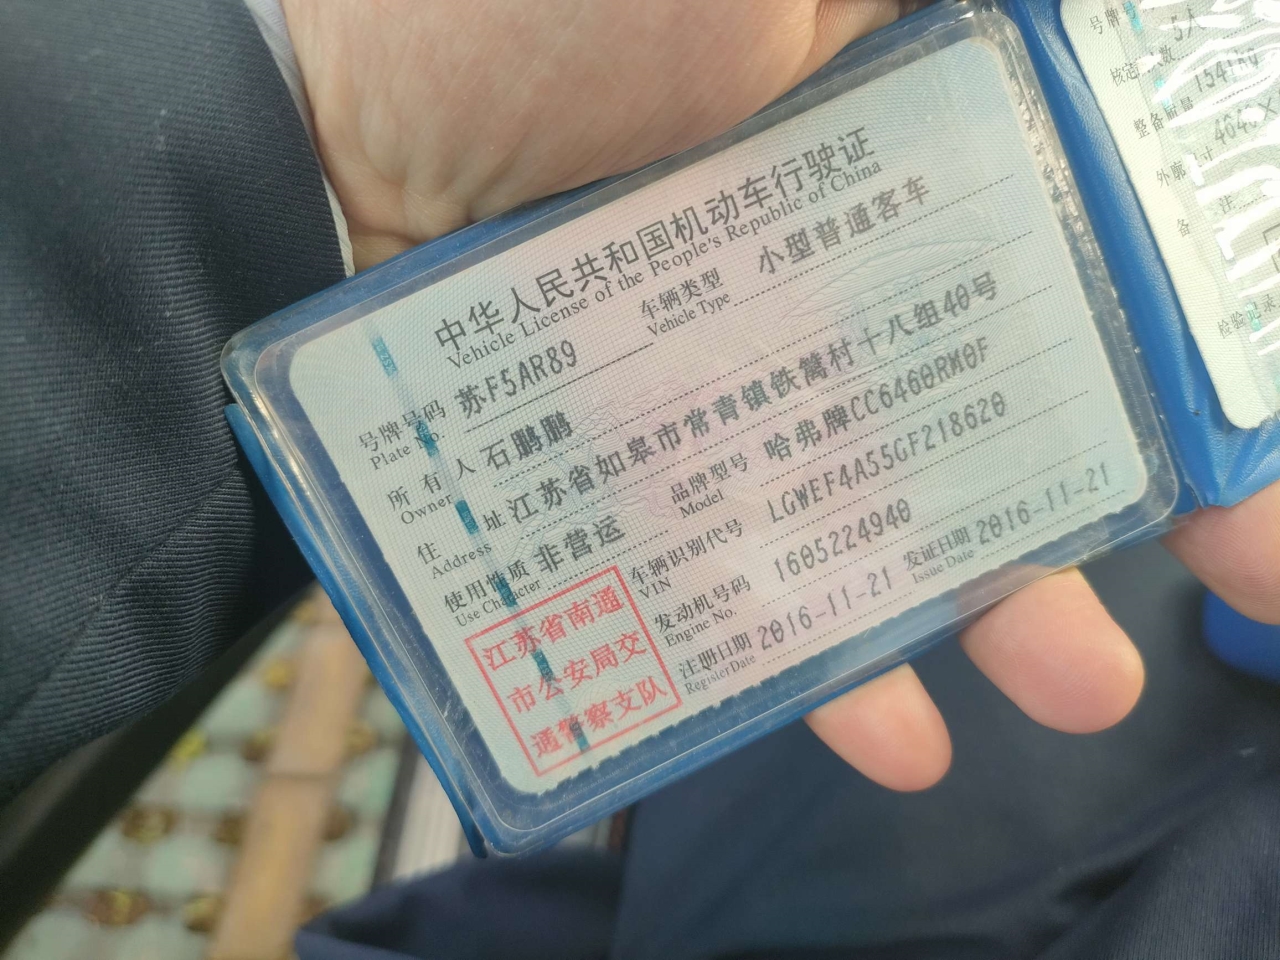 中华人民共和国机动车行驶证
Vehicle License of the People's Republic of China
号牌号码 苏F5AR89 车辆类型 小型普通客车
Plate No. Vehicle Type
所有人 石鹏鹏
Owner
住址 江苏省如皋市常青镇铁篱村十八组40号
Address
使用性质 非营运 品牌型号 哈弗牌CC6460RM0F
Use Character Model
车辆识别代号 LGWEF4A55GF218620
VIN
发动机号码 1605224940
Engine No.
注册日期 2016-11-21 发证日期 2016-11-21
Register Date Issue Date
江苏省南通
市公安局交
通警察支队
号牌号
核定 人数 5人
整备质量
外廓 寸
备 注
检验记录